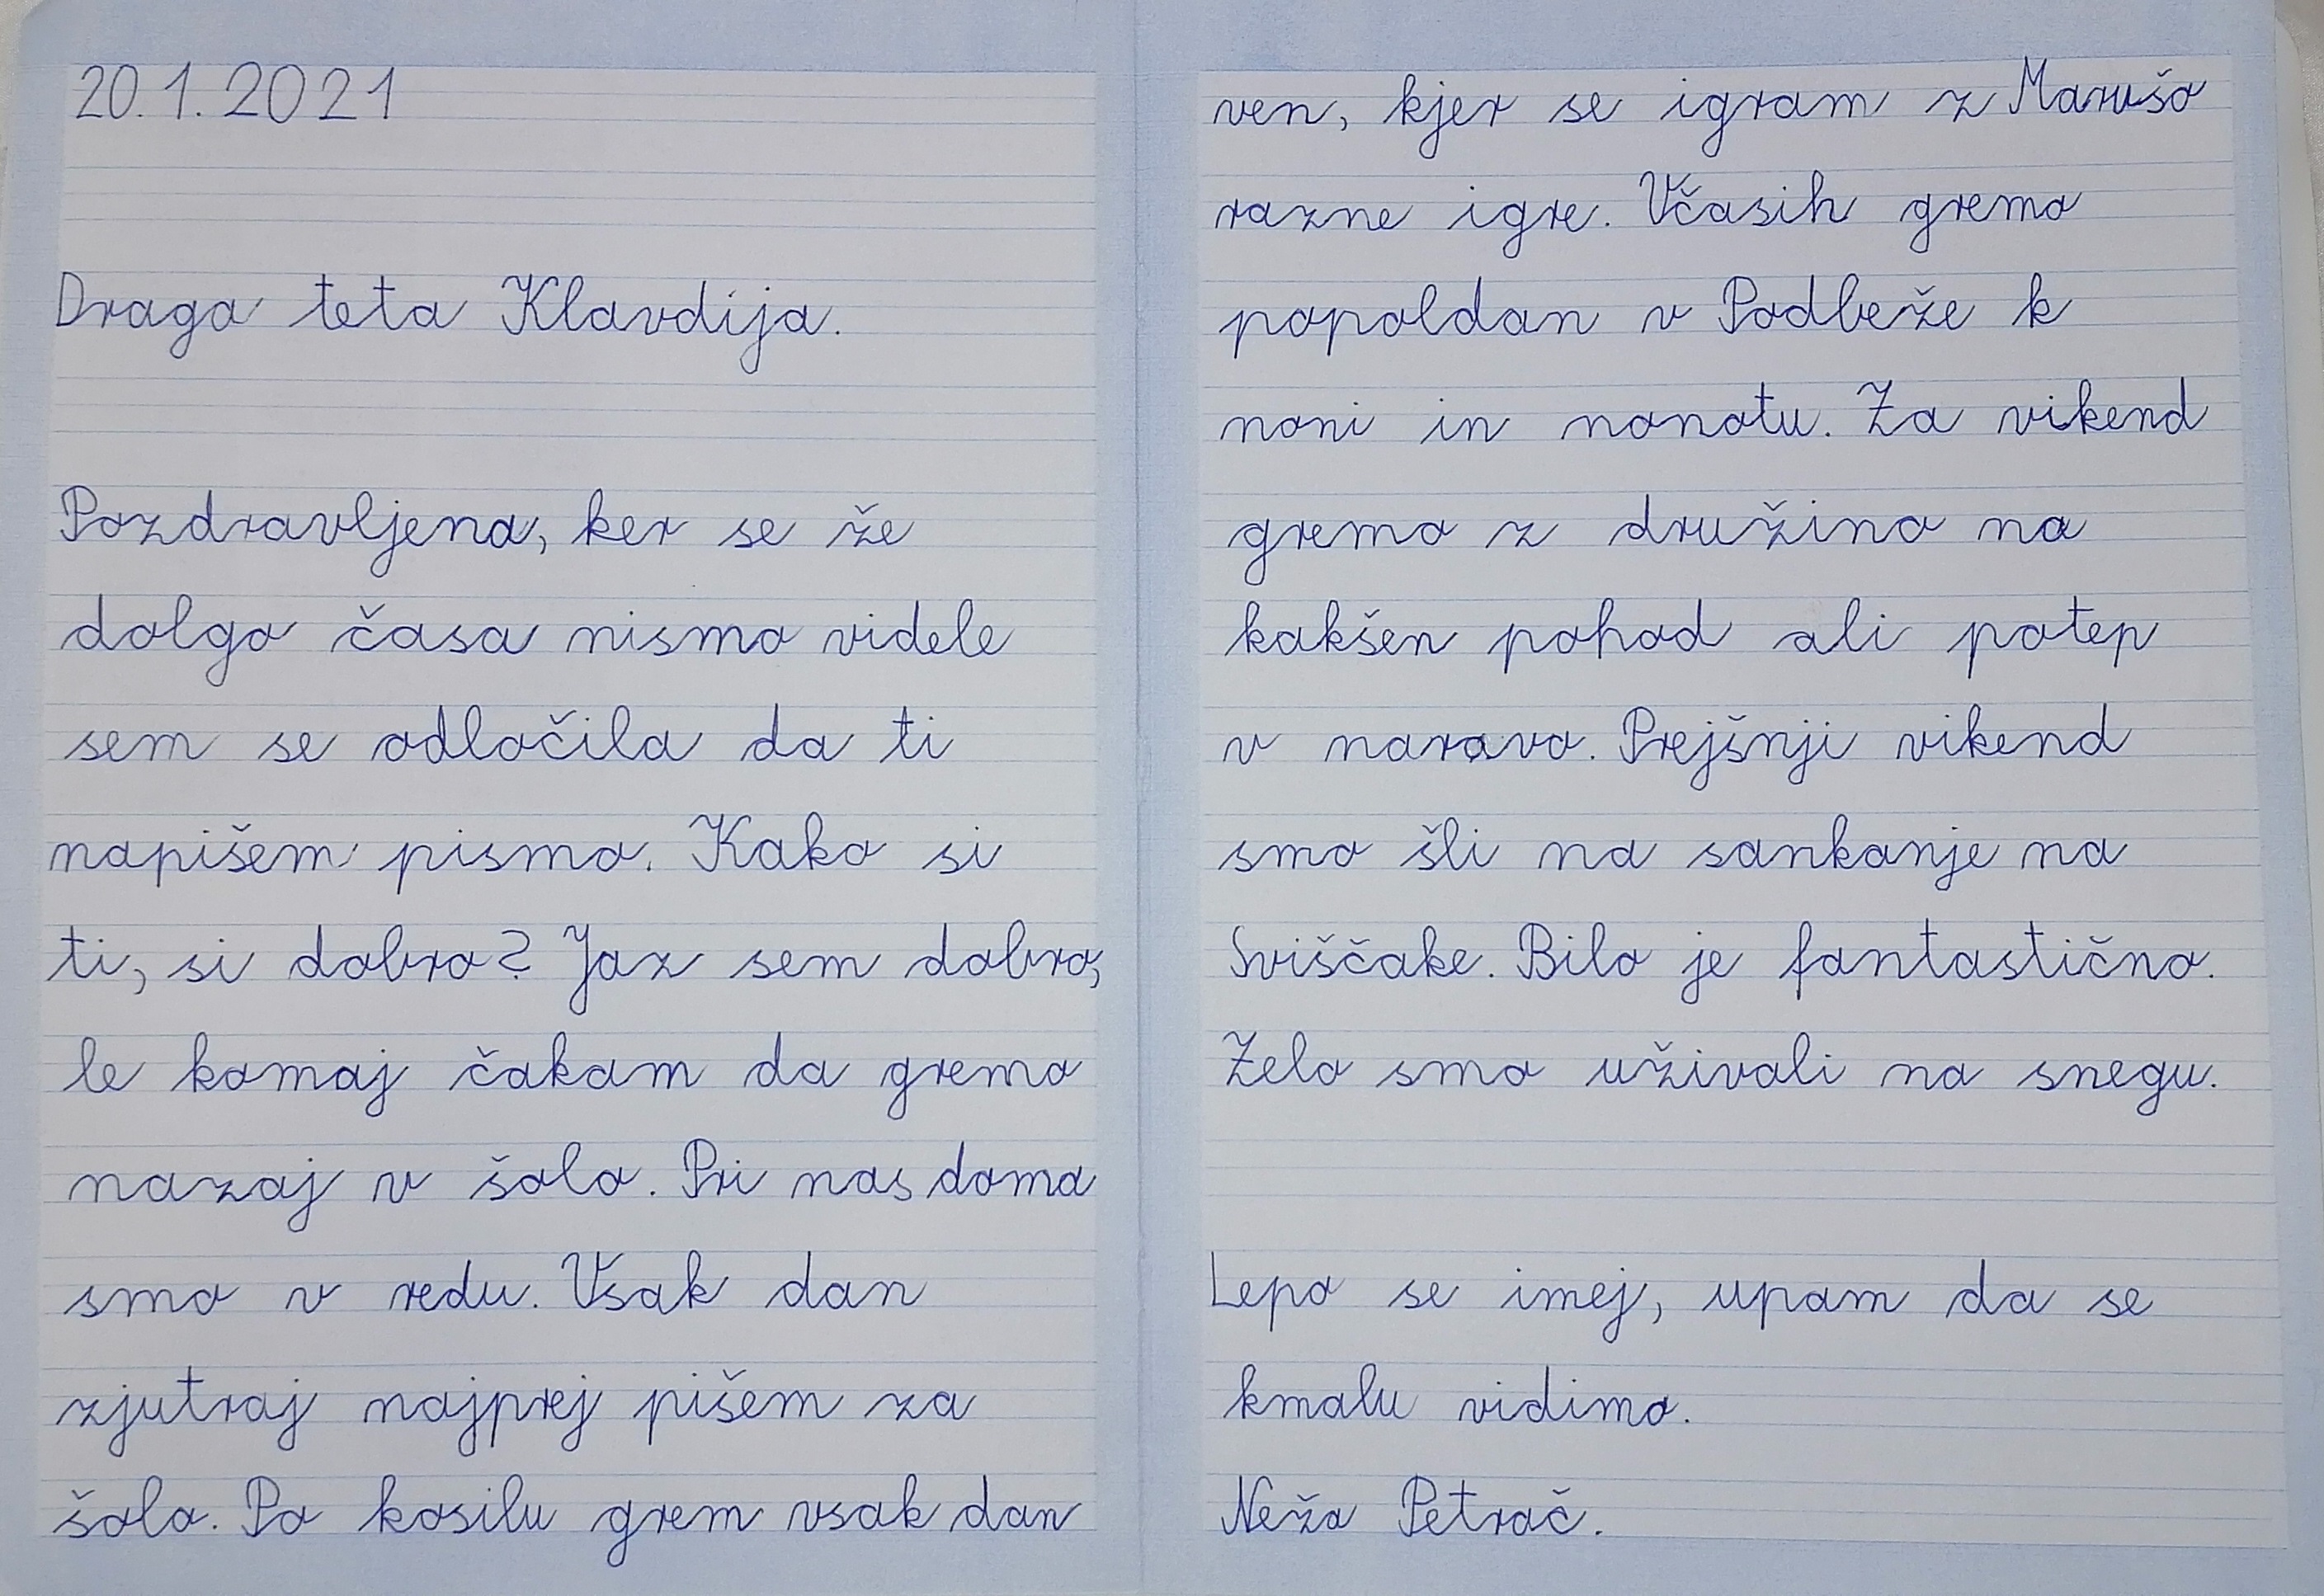 20.1.2021
Draga teta Klavdija.
Pozdravljena, ker se že
dolgo časa nismo videle
sem se odločila da ti
napišem pismo. Kako si
ti, si dobro? Jaz sem dobro,
le komaj čakam da gremo
nazaj v šolo. Pri nas doma
smo v redu. Vsak dan
zjutraj najprej pišem za
šolo. Po kosilu grem vsak dan
ven, kjer se igram z Marušo
razne igre. Včasih gremo
popoldan v Podbeže k
noni in nonotu. Za vikend
gremo z družino na
kakšen pohod ali potep
v naravo. Prejšnji vikend
smo šli na sankanje na
Sviščake. Bilo je fantastično.
Zelo smo uživali na snegu.
Lepo se imej, upam da se
kmalu vidimo.
Neža Petrač.